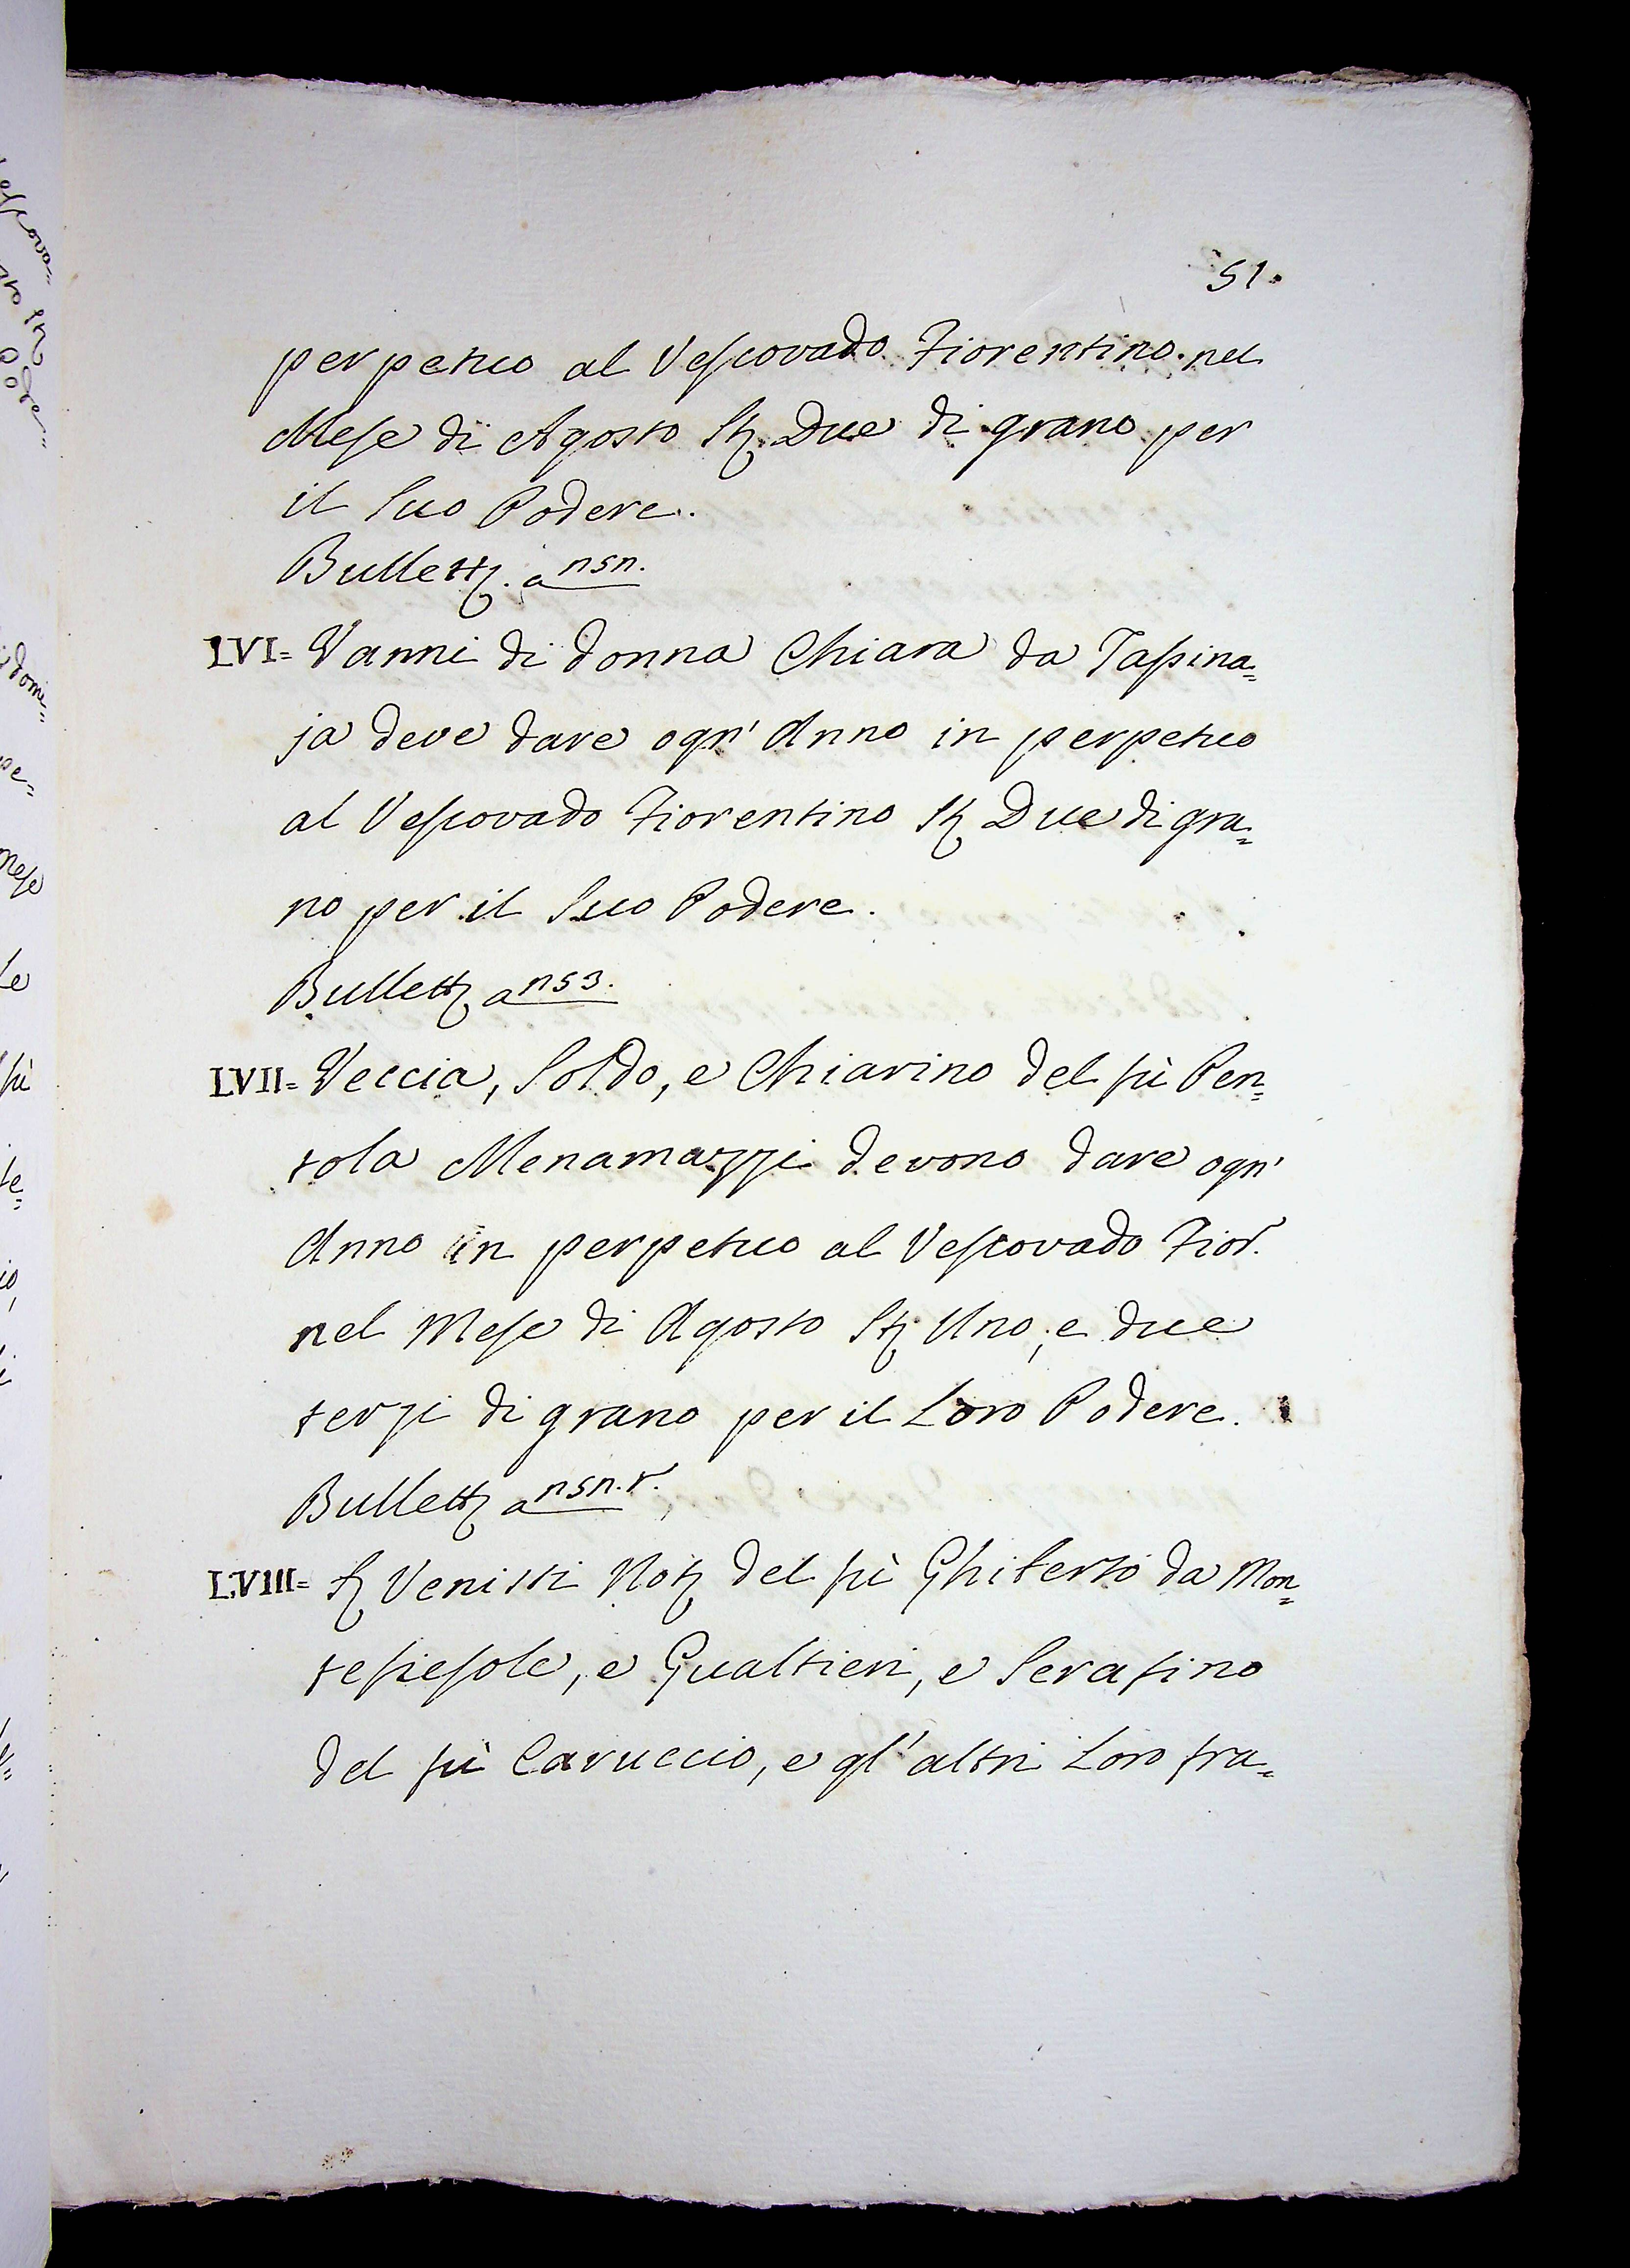 51.
perpetuo al Vescovado Fiorentino nel
Mese di Agosto St. Due di grano per
il Suo Podere.
Bullett. a nsn.
LVI= Vanni di donna Chiara da Tassina=
ja deve dare ogn' Anno in perpetuo
al Vescovado Fiorentino St. Due di gra=
no per il Suo Podere.
Bullett. a ns3.
LVII= Veccia, Soldo, e Chiarino del fù Pen=
tola Menamazzi devono dare ogn'
Anno in perpetuo al Vescovado Fior.
nel Mese di Agosto St. Uno, e due
terzi di grano per il Loro Podere.
Bullett. a nsn.r.
LVIII= S. Venisti Not. del fù Ghiberto da Mon=
tefiesole, e Gualtieri, e Serafino
del fù Caruccio, e gl' altri Loro fra=